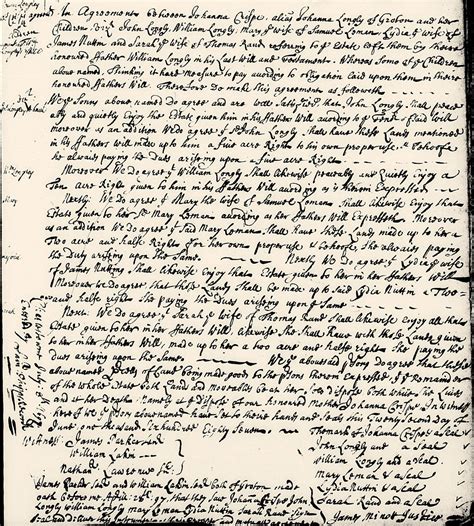 An Agreement between Johanna Crispe, alias Johanna Longly of Groton and her
Children viz. John Longly, William Longly, Mary ye wife of Samuel Leman Lydia ye wife of
James Nuttin and Sarah ye wife of Thomas Rand referring to ye Estate left them by their
honoured father William Longly in his last Will and Testament. Whereas some of ye Children
above named Thinking it hard measure to pay according to obligation laid upon them in their
honoured fathers Will Therefore do make this agreement as followeth
We ye Sons above named do agree and are well satisfied that John Longly shall peace
ably and quietly Enjoy the Estate given him in his fathers Will according to ye Tenr. of said Will
moreover as an addition We do agree ye John Longly shall have these Lands mentioned
in his fathers Will made up to him a five acre Right to his own proper use &
he always paying the Dues arising upon a five acre Right
Moreover We do agree ye William Longly shall likewise peaceably and Quietly Enjoy a
Ten acre Right given to him in his fathers Will according as is therein Expressed
Nextly. We do agree ye Mary the wife of Samuel Leman shall likewise Enjoy that
Estate given to her ye sd Mary Leman according as her fathers Will Expresseth Moreover
as an addition We do agree ye said Mary Leman shall have these Lands made up to her a
Two acre and half Right for her own proper use & she always paying
the Duty arising upon the same Nextly We do agree ye Lydia ye wife of
James Nutting shall likewise Enjoy that Estate given to her in her fathers Will
Moreover We do agree that these Lands shall be made up to said Lydia Nuttin a Two
and half Right she paying the dues arising upon ye same
Next: We do agree ye Sarah ye wife of Thomas Rand shall likewise Enjoy all that
Estate given to her in her fathers Will likewise she shall have with these Lands given
to her in her fathers Will, made up to her a two acre and half Right she paying the
dues arising upon the same We ye abovesaid do agree that
above named of Land being made good to the persons therein Expressed ye Remainder
of the whole Estate both Land and moveables be at her dispose both whilst she Lives
and at her Death Namely at ye dispose of our honoured Mother Johanna Crispe In witness
here of We ye persons abovenamed have set to their hands and seals this Twenty Second Day of
June one thousand Six hundred Eighty Seven
Witness James Parker
William Lakin
Nathan Lawrence
Thomas & Johanna Crispe & a Seal
John Longly and a Seal
William Longly and a Seal
Mary Leman & a Seal
Lydia Nuttin & a Seal
Sarah Rand and a Seal
James Parker and William Lakin said both of Groton made
oath before me April 28. 97. that they saw Johanna Crispe John
James Minot Justice